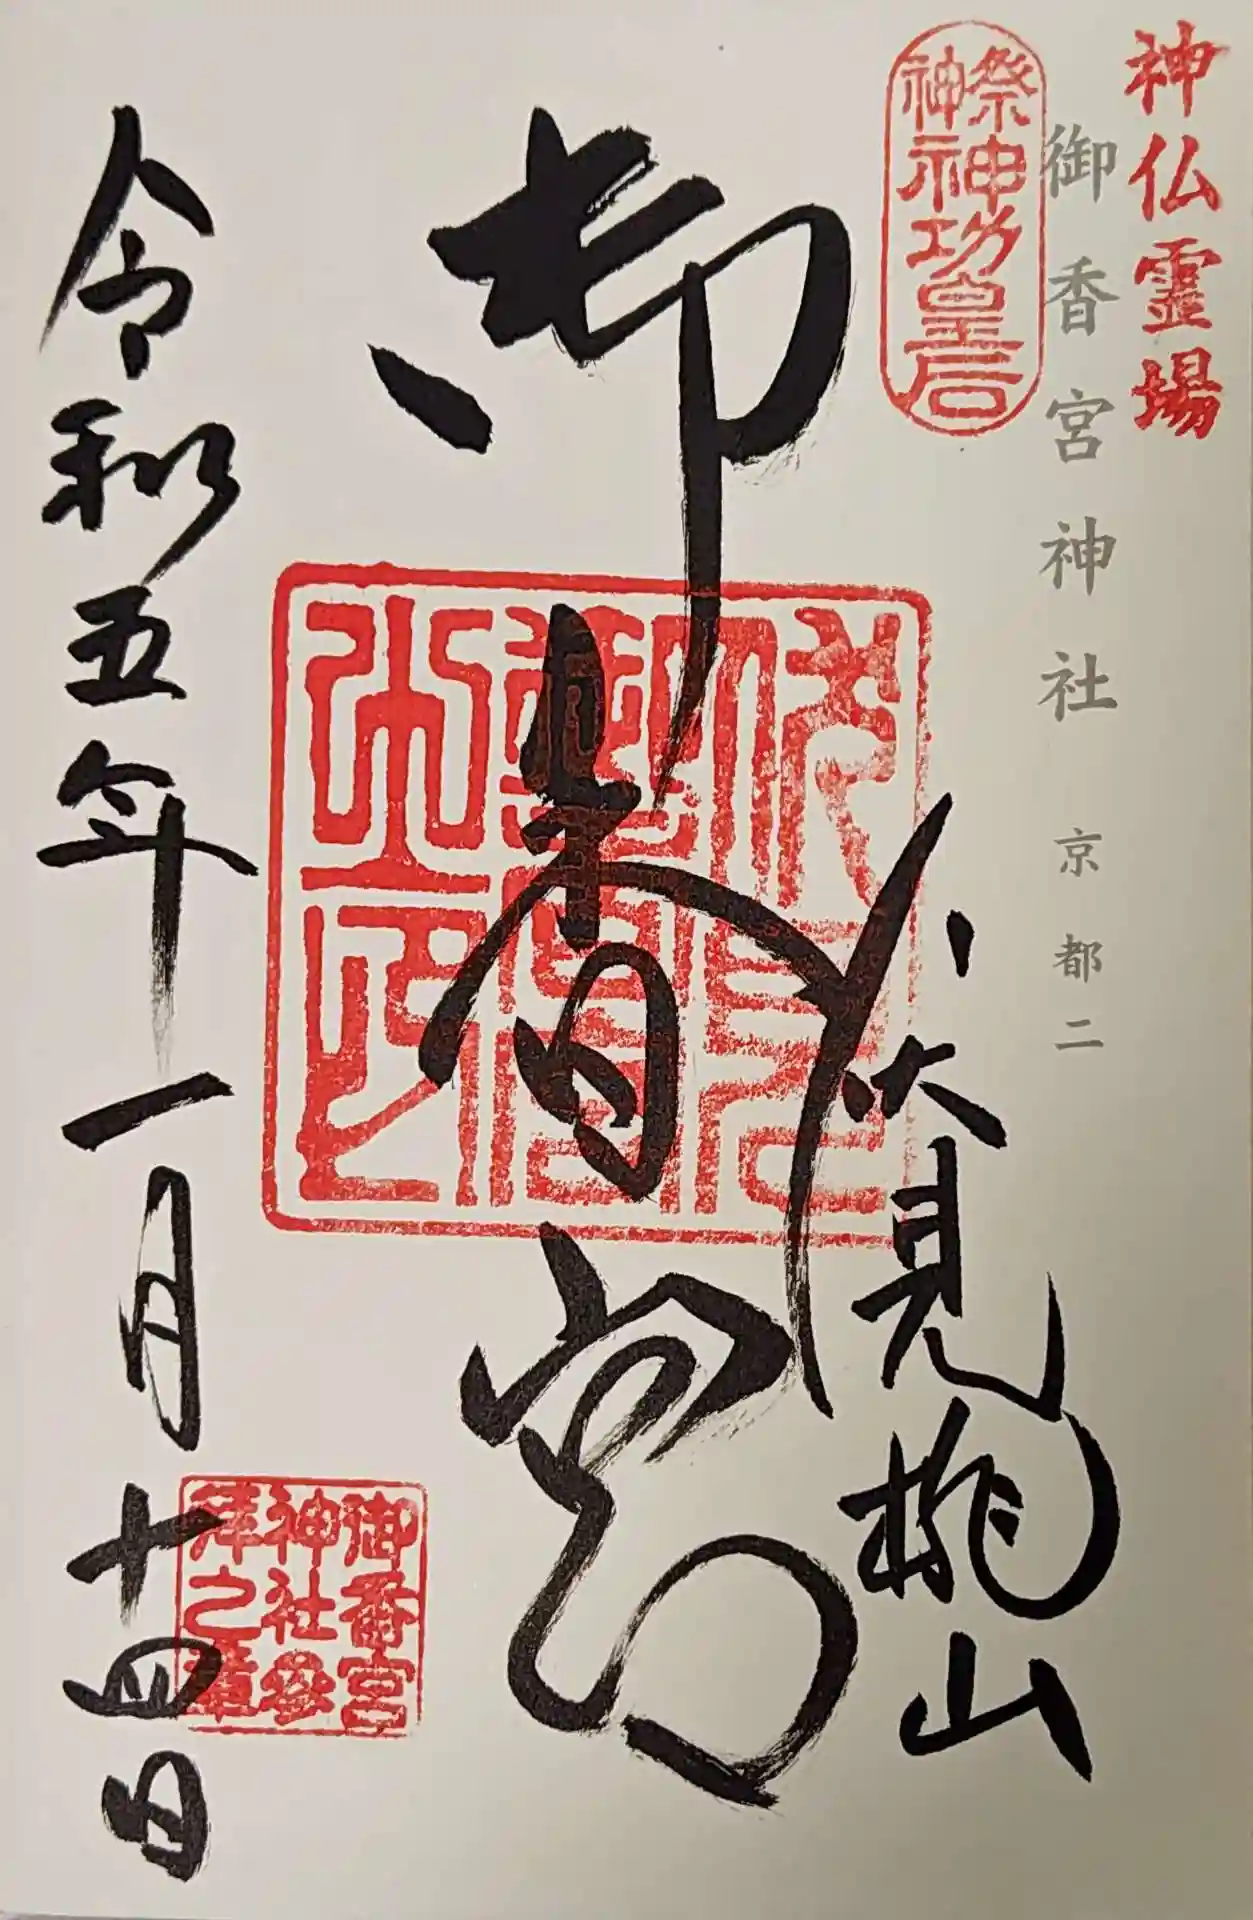 神仏霊場
御香宮神社 京都二
祭神
神功皇后
伏見桃山
御香宮
御香宮
神社参
拝之章
令和五年一月十四日